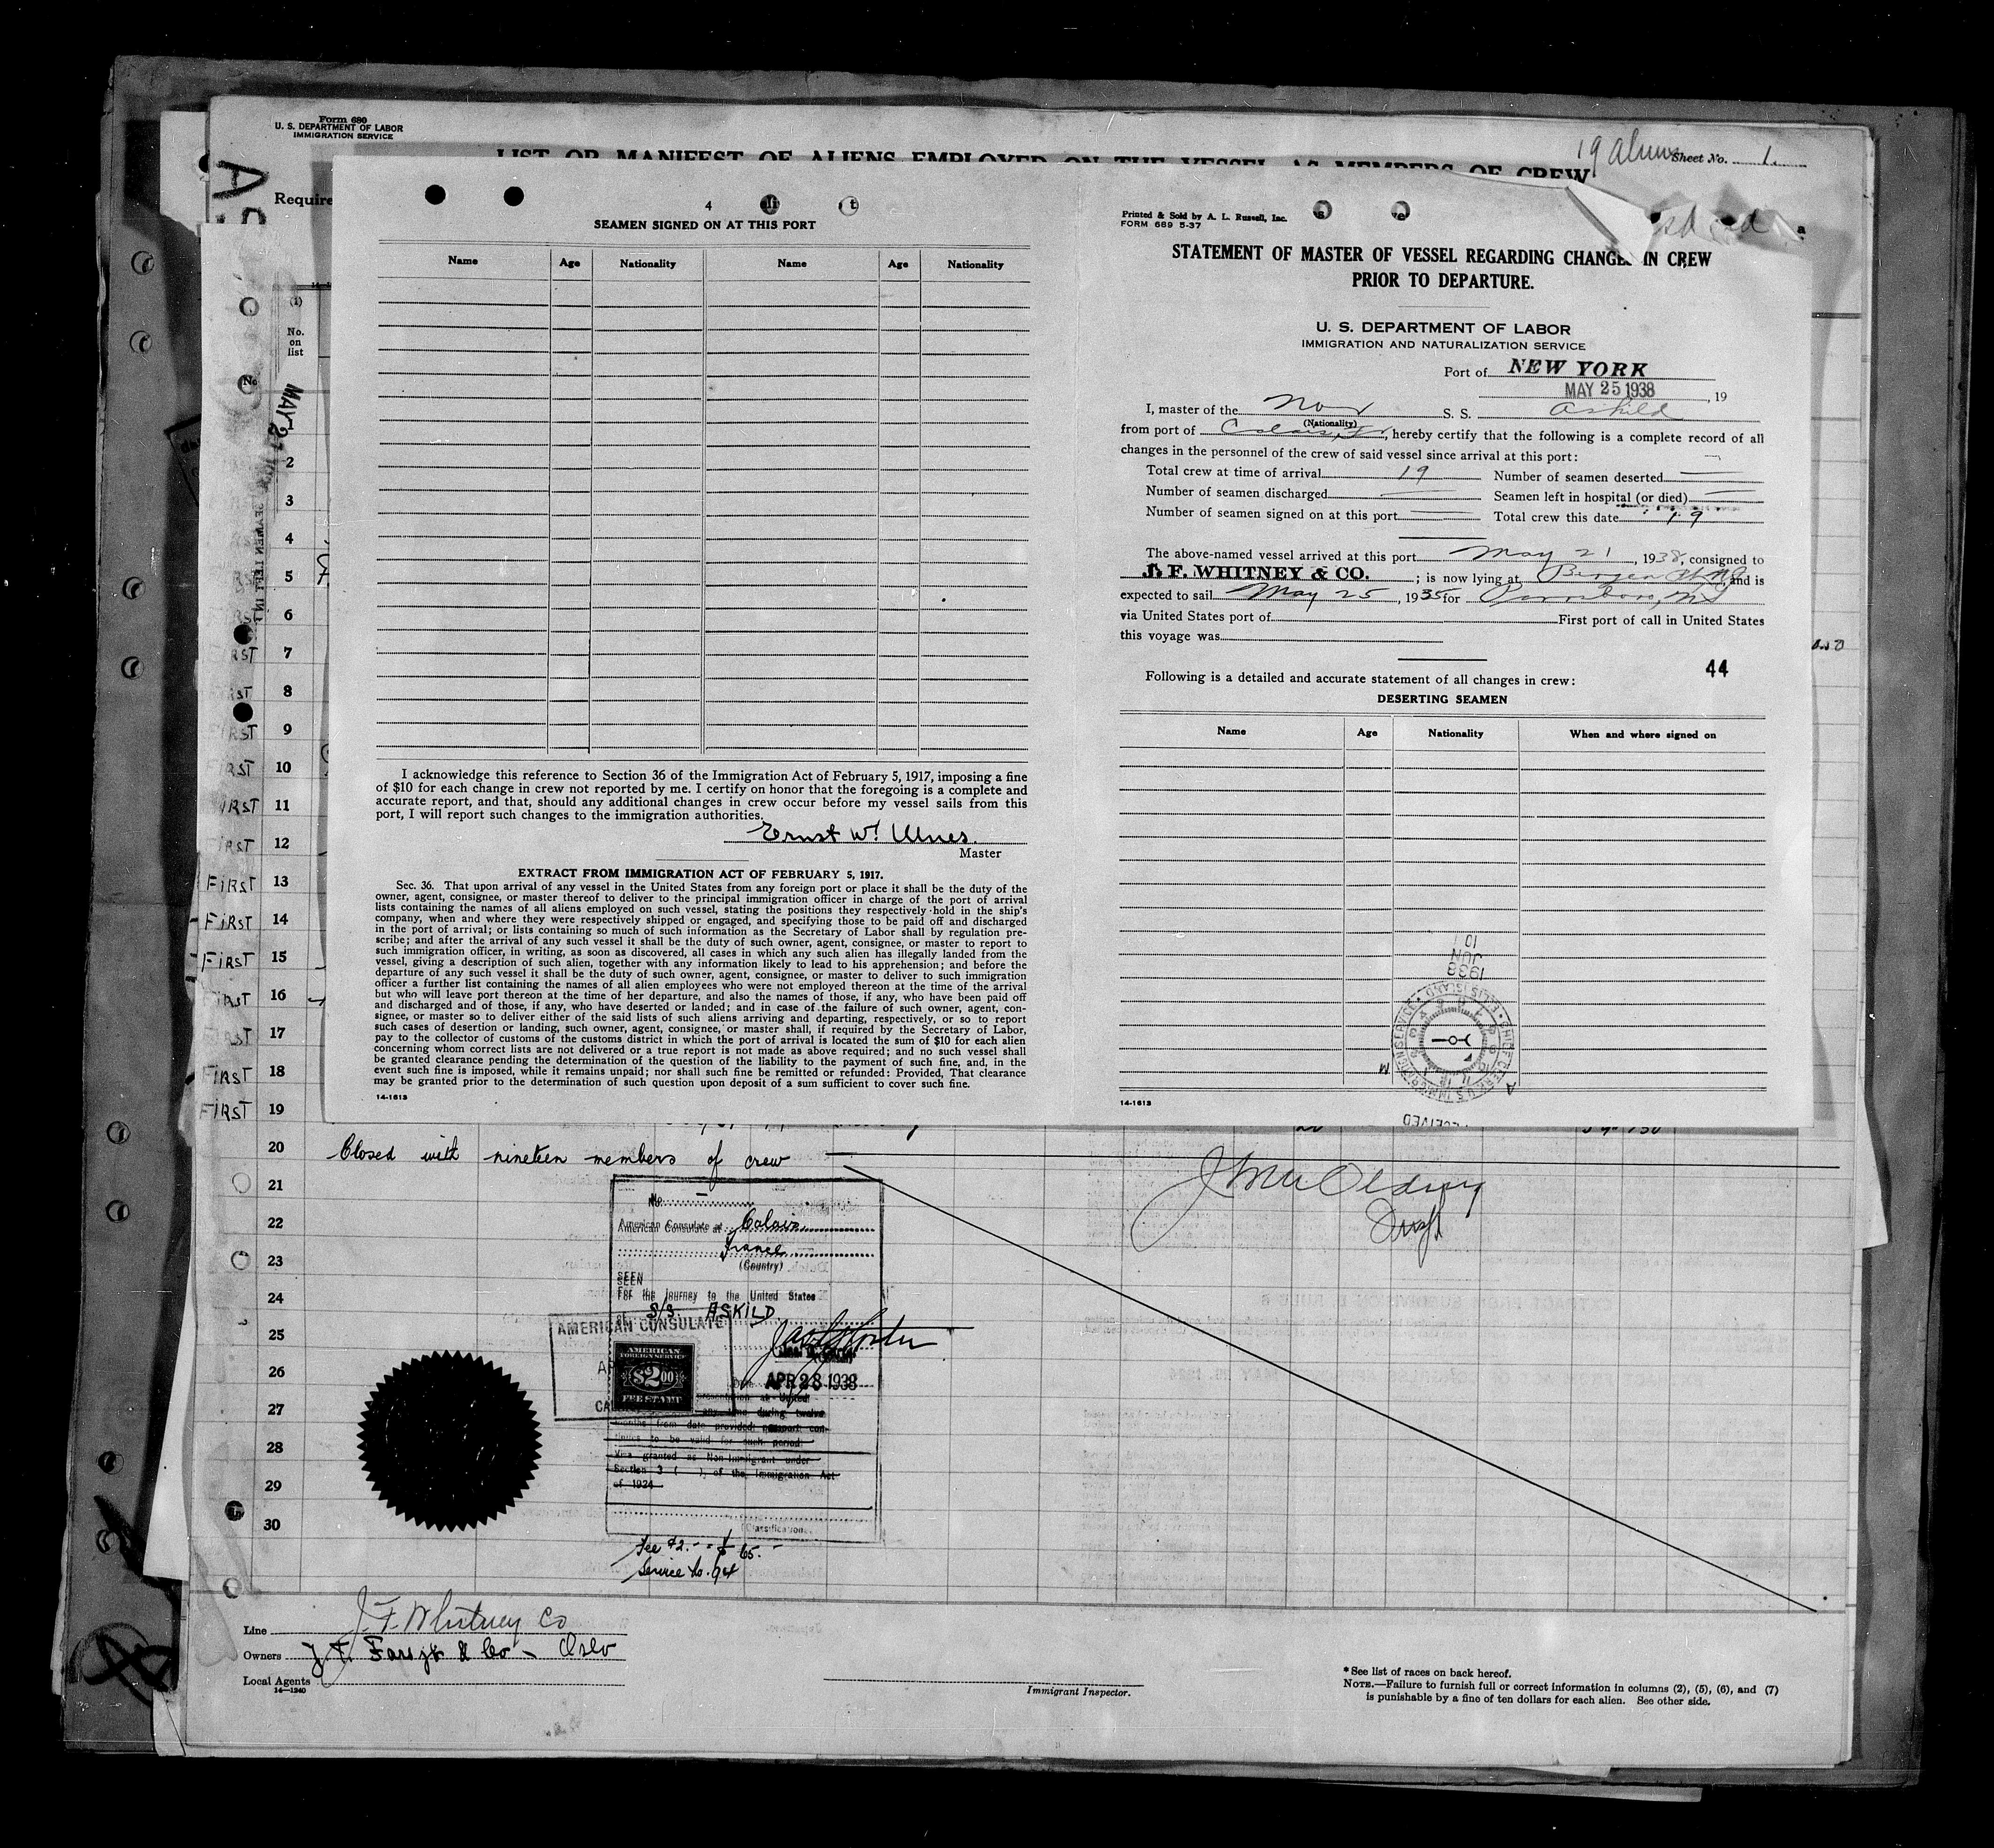 Form 680
U. S. DEPARTMENT OF LABOR
IMMIGRATION SERVICE
LIST OR MANIFEST OF ALIENS EMPLOYED ON THE VESSEL AS MEMBERS OF CREW
19 aliens
Sheet No. 1.
Require
(1)
No.
on
list
4
SEAMEN SIGNED ON AT THIS PORT
Name Age Nationality Name Age Nationality
I acknowledge this reference to Section 36 of the Immigration Act of February 5, 1917, imposing a fine
of $10 for each change in crew not reported by me. I certify on honor that the foregoing is a complete and
accurate report, and that, should any additional changes in crew occur before my vessel sails from this
port, I will report such changes to the immigration authorities.
Ernst W. Ulnes.
Master
EXTRACT FROM IMMIGRATION ACT OF FEBRUARY 5, 1917.
Sec. 36. That upon arrival of any vessel in the United States from any foreign port or place it shall be the duty of the
owner, agent, consignee, or master thereof to deliver to the principal immigration officer in charge of the port of arrival
lists containing the names of all aliens employed on such vessel, stating the positions they respectively hold in the ship's
company, when and where they were respectively shipped or engaged, and specifying those to be paid off and discharged
in the port of arrival; or lists containing so much of such information as the Secretary of Labor shall by regulation pre-
scribe; and after the arrival of any such vessel it shall be the duty of such owner, agent, consignee, or master to report to
such immigration officer, in writing, as soon as discovered, all cases in which any such alien has illegally landed from the
vessel, giving a description of such alien, together with any information likely to lead to his apprehension; and before the
departure of any such vessel it shall be the duty of such owner, agent, consignee, or master to deliver to such immigration
officer a further list containing the names of all alien employees who were not employed thereon at the time of the arrival
but who will leave port thereon at the time of her departure, and also the names of those, if any, who have been paid off
and discharged and of those, if any, who have deserted or landed; and in case of the failure of such owner, agent, con-
signee, or master so to deliver either of the said lists of such aliens arriving and departing, respectively, or so to report
such cases of desertion or landing, such owner, agent, consignee, or master shall, if required by the Secretary of Labor,
pay to the collector of customs of the customs district in which the port of arrival is located the sum of $10 for each alien
concerning whom correct lists are not delivered or a true report is not made as above required; and no such vessel shall
be granted clearance pending the determination of the question of the liability to the payment of such fine, and, in the
event such fine is imposed, while it remains unpaid; nor shall such fine be remitted or refunded: Provided, That clearance
may be granted prior to the determination of such question upon deposit of a sum sufficient to cover such fine.
14-1613
Printed & Sold by A. L. Russell, Inc.
FORM 689 5-37
STATEMENT OF MASTER OF VESSEL REGARDING CHANGES IN CREW
PRIOR TO DEPARTURE.
U. S. DEPARTMENT OF LABOR
IMMIGRATION AND NATURALIZATION SERVICE
Port of NEW YORK
MAY 25 1938, 19
I, master of the Nor S. S. Askild
(Nationality)
from port of Calais, Fr, hereby certify that the following is a complete record of all
changes in the personnel of the crew of said vessel since arrival at this port:
Total crew at time of arrival 19 Number of seamen deserted
Number of seamen discharged Seamen left in hospital (or died)
Number of seamen signed on at this port Total crew this date 19
The above-named vessel arrived at this port May 21, 1938, consigned to
J. F. WHITNEY & CO.; is now lying at Bergen and is
expected to sail May 25, 1935 for Parrsboro, NS
via United States port of First port of call in United States
this voyage was
44
Following is a detailed and accurate statement of all changes in crew:
DESERTING SEAMEN
Name Age Nationality When and where signed on
1938
JUN
10
CHIEF CLERK U.S. IMMIGRATION SERVICE
ELLIS ISLAND
RECEIVED
14-1613
2
3
4
5
6
RST 7
ST 8
RST 9
RST 10
IRST 11
IRST 12
FIRST 13
FIRST 14
FIRST 15
FIRST 16
RST 17
FIRST 18
FIRST 19
20 Closed with nineteen members of crew
21
22
23
24
25
26
27
28
29
30
No. –
American Consulate at Calais
France
(Country)
SEEN
For the journey to the United States
S/S. ASKILD
AMERICAN CONSULATE
AMERICAN
FOREIGN SERVICE
$2.00
FEE STAMP
APR 28 1938
any time during twelve
months from date provided passport con-
tinues to be valid for such period.
Visa granted as Non-Immigrant under
Section 3 ( ), of the Immigration Act
of 1924
(Classification)
Fee $2.-
Service No. 94
Line J. F. Whitney Co
Owners
& Co – Oslo
Local Agents
14—1240
Immigrant Inspector.
* See list of races on back hereof.
NOTE.—Failure to furnish full or correct information in columns (2), (5), (6), and (7)
is punishable by a fine of ten dollars for each alien. See other side.